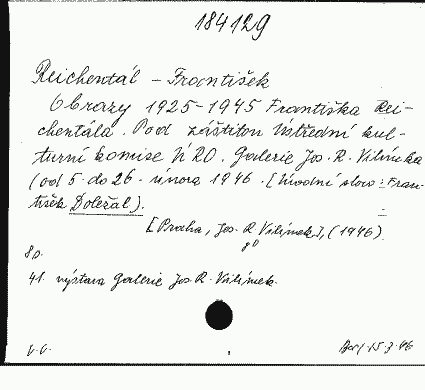 184129
Reichentál - František
Obrazy 1925-1945 Františka Rei-
chentála. Pod záštitou Ústřední kul-
turní komise ÚRO. Galerie Jos. R. Vilímka
(od 5. do 26. února 1946. [Úvodní slovo: Fran-
tišek Doležal).
[Praha, Jos. R. Vilímek], (1946).
8°
41. výstava Galerie Jos. R. Vilímek.
15.3.46